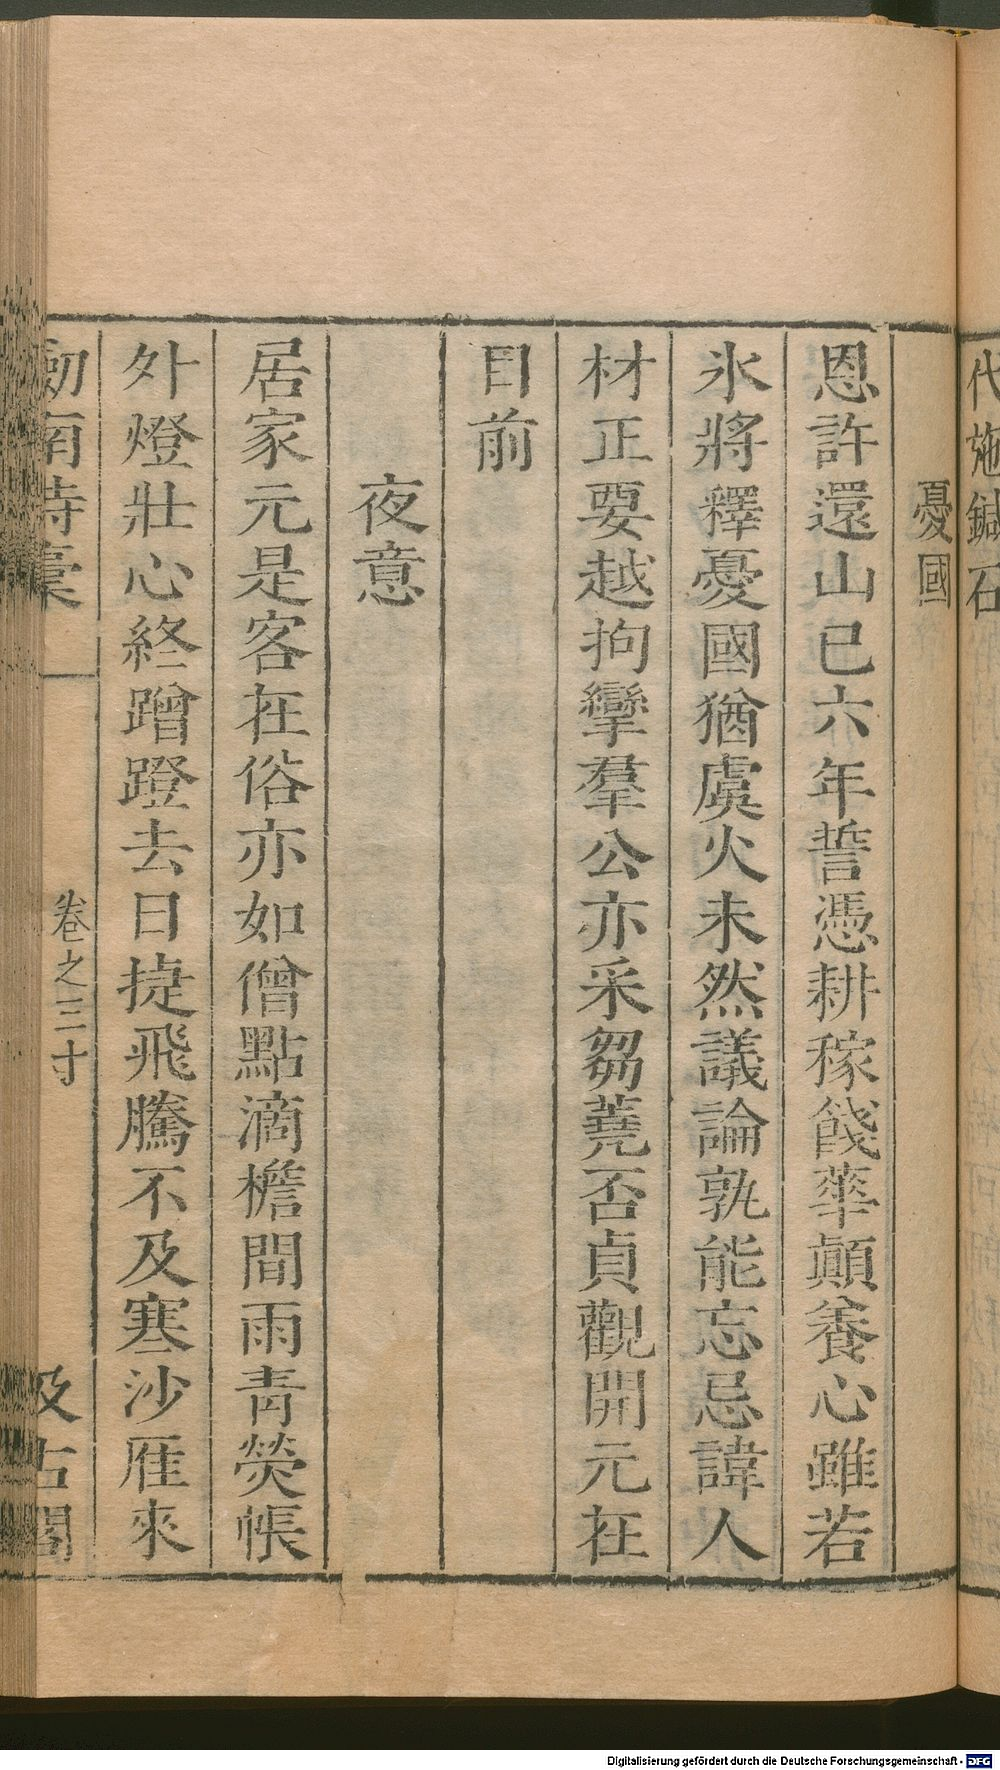 代施鍼石
憂國
恩許還山已六年誓憑耕稼餞華顛養心雖若
氷將釋憂國猶虞火未然議論孰能忘忌諱人
材正要越拘攣羣公亦采芻蕘否貞觀開元在
目前
夜意
居家元是客在俗亦如僧點滴檐間雨靑熒帳
外燈壯心終蹭蹬去日捷飛騰不及寒沙雁來
劒南詩稾
卷之三寸
汲古閣
Digitalisierung gefördert durch die Deutsche Forschungsgemeinschaft - DFG